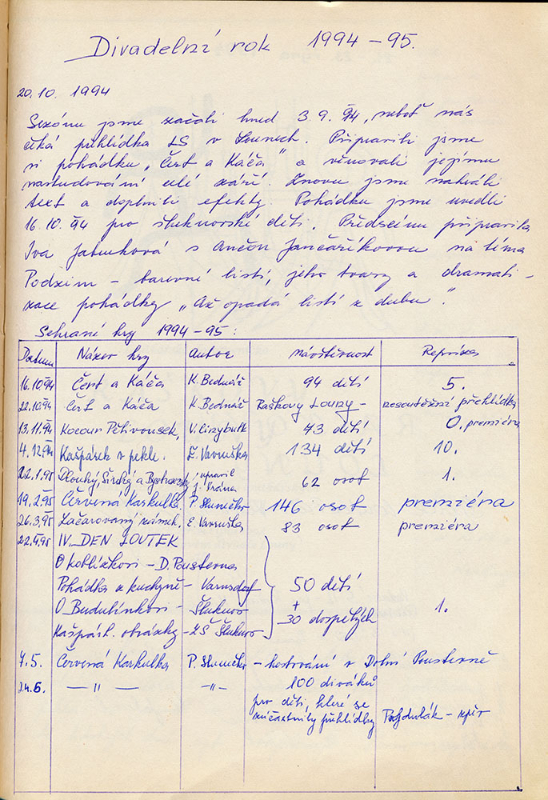 Divadelní rok 1994-95.
20.10. 1994
Sezónu jsme začali hned 3.9.94, neboť nás
čeká přehlídka LS v Lounech. Připravili jsme
si pohádku "Čert a Káča" a věnovali jejímu
nastudování celé září. Znovu jsme nahráli
text a doplnili efekty. Pohádku jsme uvedli
16.10.94 pro šluknovské děti. Předscénu připravila
Iva s Ančou Jančaříkovou na téma
Podzim - barevné listí, jeho tvary a dramati-
zace pohádky "Až opadá listí z dubu".
Sehrané hry 1994-95:
Datum Název hry Autor návštěvnost Repríza
16.10.94 Čert a Káča K. Bednář 94 dětí 5.
22.10.94 Čert a Káča K. Bednář Raškovy Louny - nesoutěžní přehlídka
13.11.94 Kocour Pětivousek, V. Cinybulk 43 dětí 0. premiéra
4.12.94 Kašpárek v pekle. F. Vavruška 134 dětí 10.
22.1.95 Dlouhý, Široký a Bystrozraký upravil J. Vrána 62 osob 1.
19.2.95 Červená Karkulka, P. 146 osob premiéra
26.3.95 Začarovaný zámek. E. Vavruška 83 osob premiéra
22.4.95 IV. DEN LOUTEK
O koblížkovi - D. Poustevna
Pohádka z kuchyně - Varnsdorf 50 dětí
O Budulínkovi - Šluknov + 1.
Kašpárk. obrázky - ZŠ Šluknov 30 dospělých
7.5. Červená Karkulka P. - hostování v Dolní Poustevně
24.6. -"- -"- 100 diváků
pro děti, které se
zúčastnily přehlídky